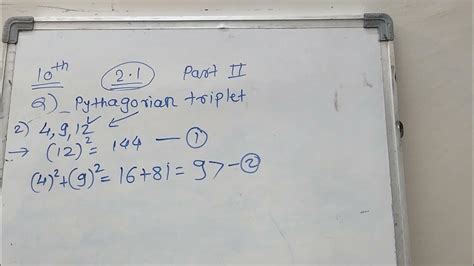 10th 2.1 Part II
Q) Pythagorian triplet
2) 4, 9, 12
→ (12)² = 144 — ①
(4)² + (9)² = 16 + 81 = 97 — ②